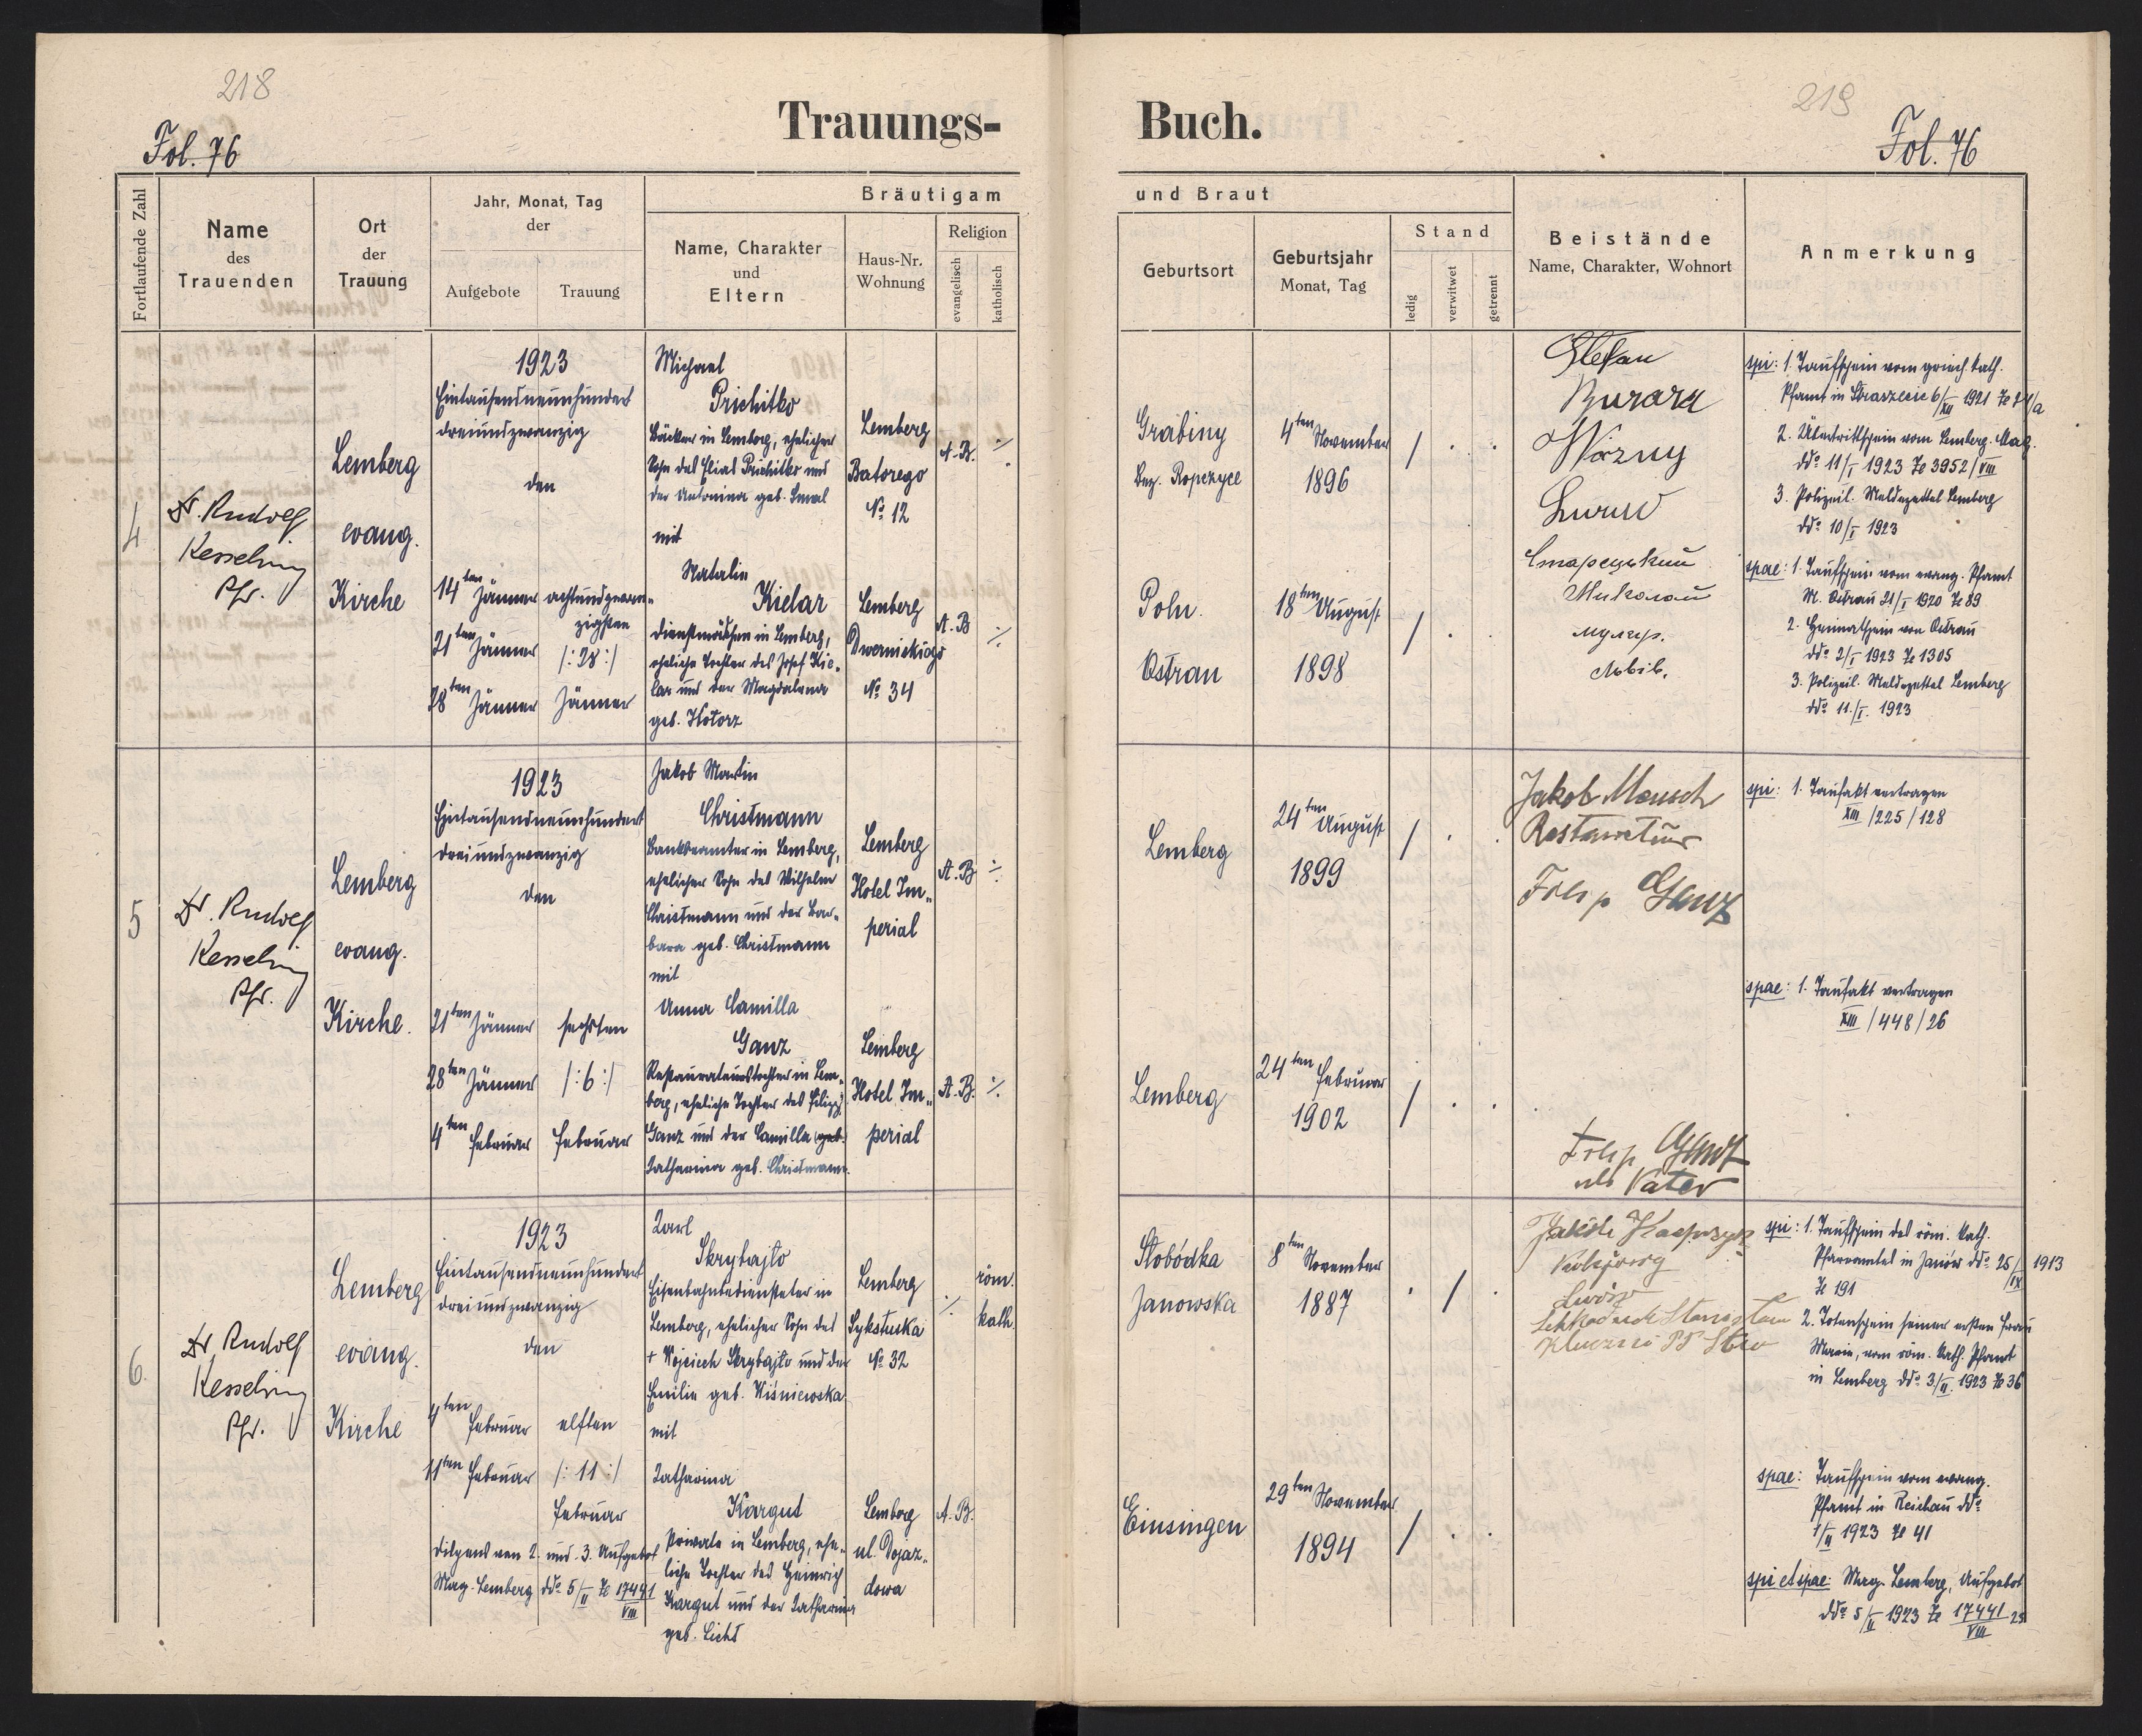 218
219
Fol. 76
Trauungs-
Buch.
Fol. 76
Fortlaufende Zahl
Name
des
Trauenden
Ort
der
Trauung
Jahr, Monat, Tag
der
Aufgebote
Trauung
Bräutigam
und Braut
Name, Charakter
und
Eltern
Haus-Nr.
Wohnung
Religion
evangelisch
katholisch
Geburtsort
Geburtsjahr
Monat, Tag
Stand
ledig
verwitwet
getrennt
Beistände
Name, Charakter, Wohnort
Anmerkung
4
Dr. Rudolf
Kesselring
Pfr.
Lemberg
evang.
Kirche
1923
Eintausendneunhundert
dreiundzwanzig
den
14ten Jänner
21ten Jänner
28ten Jänner
achtundzwan-
zigsten
/:28:/
Jänner
Michael
Prichitko
Bäcker in Lemberg, ehelicher
Sohn des Elias Prichitko und
der Antonina geb.
mit
Natalie
Kielar
Dienstmädchen in Lemberg,
eheliche Tochter des Josef Kie-
lar und der Magdalena
geb. Kotorz
Lemberg
Batorego
No 12
Lemberg
Dwernickiego
No 34
A.B. ·/.
A.B ·/.
Grabiny
Bez. Ropczyce
4ten November
1896
/ . .
Poln.
Ostrau
18ten August
1898
/ . .
Stefan
Burara
Wozny
Lwów
Старецький
Миколай
муляр.
Львів.
spi: 1. Taufschein vom griech. kath.
Pfarramt in Straszecin 6/XII 1921
2. Übertrittschein vom Lemberg. Mag.
ddo 11/I 1923 Ze 3952/VIII
3. Polizeil. Meldezettel Lemberg
ddo 10/I 1923
spae: 1. Taufschein vom evang. Pfarramt
M. Ostrau 21/I 1920 Ze 89
2. Heimatschein von Ostrau
ddo 2/I 1923 Ze 1305
3. Polizeil. Meldezettel Lemberg
ddo 11./I. 1923
5
Dr. Rudolf
Kesselring
Pfr.
Lemberg
evang.
Kirche.
1923
Eintausendneunhundert
dreiundzwanzig
den
21ten Jänner
28ten Jänner
4ten Februar
sechsten
/:6:/
Februar
Jakob Martin
Christmann
Bankbeamter in Lemberg,
ehelicher Sohn des Wilhelm
Christmann und der Bar-
bara geb. Christmann
mit
Anna Camilla
Ganz
Restaurateurstochter in Lem-
berg, eheliche Tochter des Filipp
Ganz und der Camilla geb.
Katharina geb. Christmann.
Lemberg
Hotel Im-
perial
Lemberg
Hotel Im-
perial
A.B ·/.
A.B. ·/.
Lemberg
24ten August
1899
/ . .
Lemberg
24ten Februar
1902
/ . .
Jakob Mensch
Restaurateur
Filip Ganz
Filip Ganz
als Vater
spi: 1. Taufakt vertragen
XIII /225/128
spae: 1. Taufakt vertragen
XIII /448/26
6.
Dr. Rudolf
Kesselring
Pfr.
Lemberg
evang.
Kirche
1923
Eintausendneunhundert
dreiundzwanzig
den
4ten Februar
11ten Februar
elften
/:11:/
Februar
Dispens vom 2. und 3. Aufgebot
Mag. Lemberg ddo 5/II Ze 17441/VIII
Karl
Skrybajło
Eisenbahnbediensteter in
Lemberg, ehelicher Sohn des
+ Wojciech Skrybajło und der
Emilie geb. Wiśniewska
mit
Katharina
Kargut
Private in Lemberg, ehe-
liche Tochter des Heinrich
Kargut und der Katharina
geb. Licht
Lemberg
Sykstuska
No 32
Lemberg
ul. Dojaz-
dowa
·/. röm.
kath.
A.B.
Słobódka
Janowska
8ten November
1887
. / .
Einsingen
29ten November
1894
/ . .
Lwów
spi: 1. Taufschein des röm. kath.
Pfarramtes in Janów ddo 25/IX 1913
Ze 191
2. Totenschein seiner ersten Frau
Marie, vom röm. kath. Pfarramt
in Lemberg ddo 3/II. 1923 Ze 36
spae: Taufschein vom evang.
Pfarramt in Reichau ddo
1/II 1923 Ze 41
spi et spae: Mag. Lemberg, Aufgebot
ddo 5/II 1923 Ze 17441/VIII 23